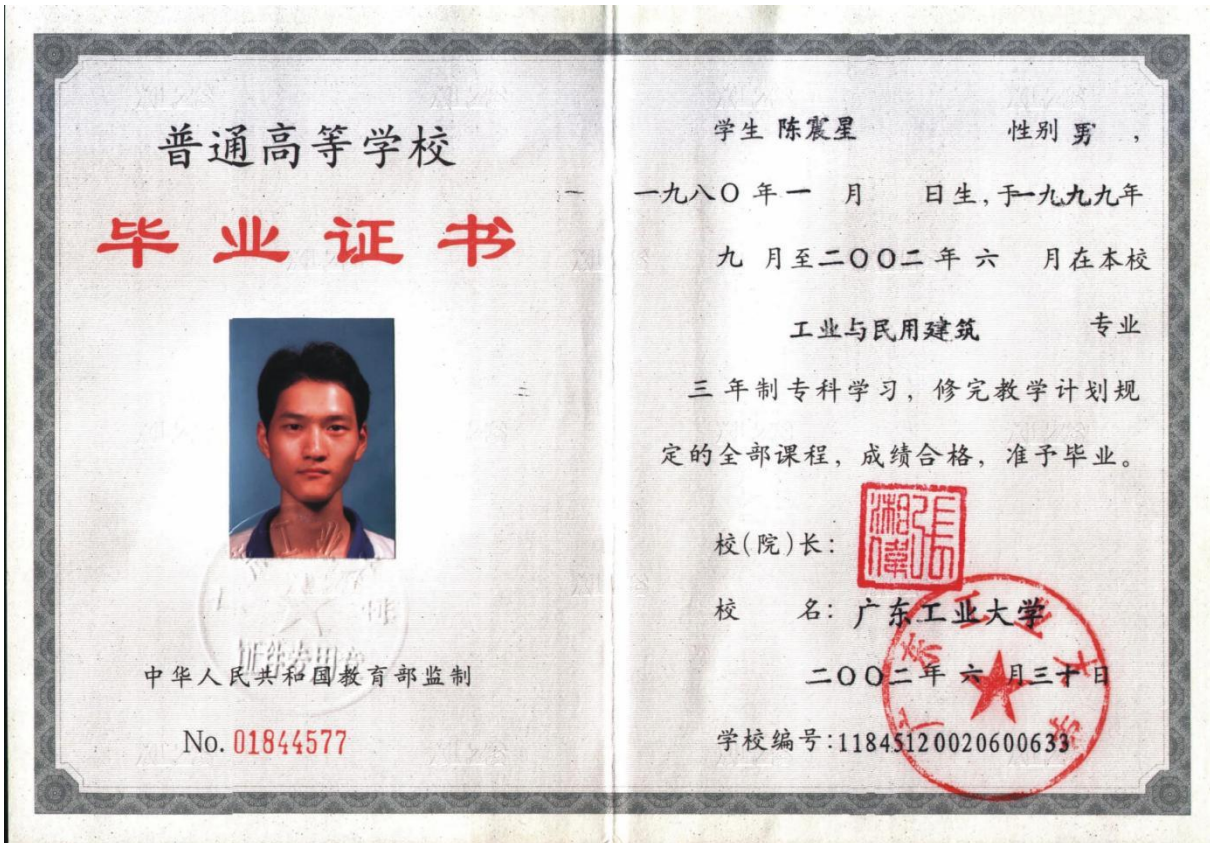 普通高等学校
毕业证书
证件专用章
中华人民共和国教育部监制
No. 01844577
学生 陈震星 性别 男 ,
一九八〇 年 一 月 日生,于一九九九年
九 月至二〇〇二 年 六 月在本校
工业与民用建筑 专业
三 年制专科学习,修完教学计划规
定的全部课程,成绩合格,准予毕业。
校(院)长:
張湘偉
校 名: 广东工业大学
二〇〇二年 六 月三十日
学校编号:11845120020600633
广东工业大学